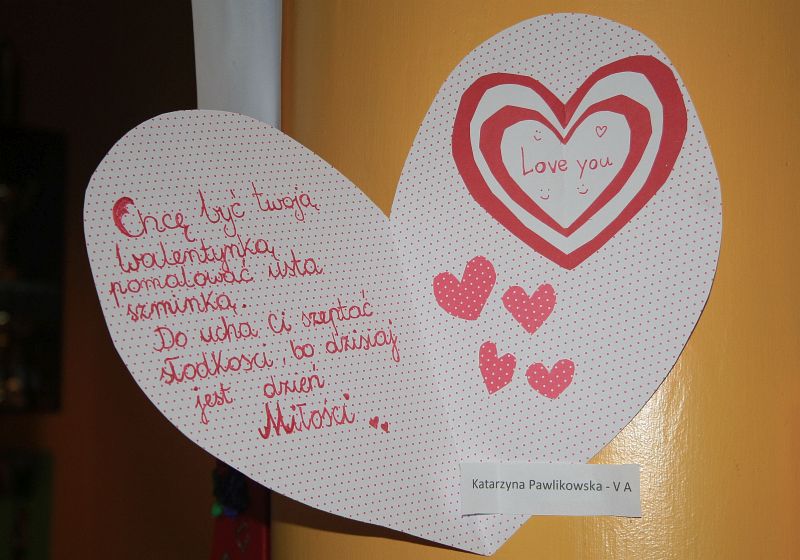 Chcę być twoją
walentynką
pomalować usta
szminką.
Do ucha Ci szeptać
słodkosci, bo dzisiaj
jest dzień
Miłości
Love you
Katarzyna Pawlikowska - V A